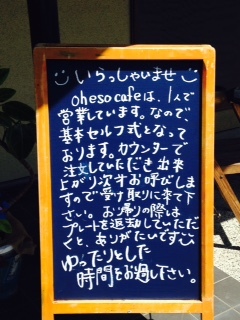 いらっしゃいませ
oheso cafeは、1人で
営業しています。なので、
基本セルフ式となって
おります。カウンターで
注文していただき出来
上がり次第お呼びしま
すので受け取りに来て下
さい。お帰りの際は
プレートを返却していただ
くと、ありがたいです
ゆったりとした
時間をお過し下さい。